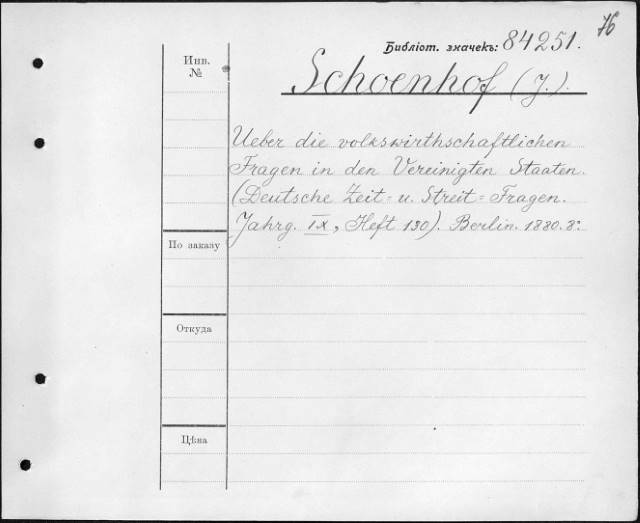 76
Библіот. значекъ: 84251.
Инв.
№
Schoenhof (J.).
Ueber die volkswirthschaftlichen
Fragen in den Vereinigten Staaten.
(Deutsche Zeit= u. Streit=Fragen.
Jahrg. IX, Heft 130). Berlin. 1880. 8º
По заказу
Откуда
Цѣна